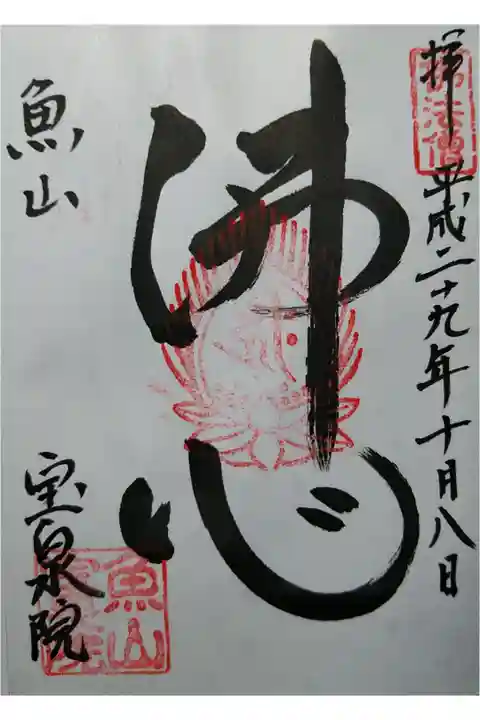 拝 平成二十九年十月八日
佛法僧
佛心
魚山
宝泉院
魚山